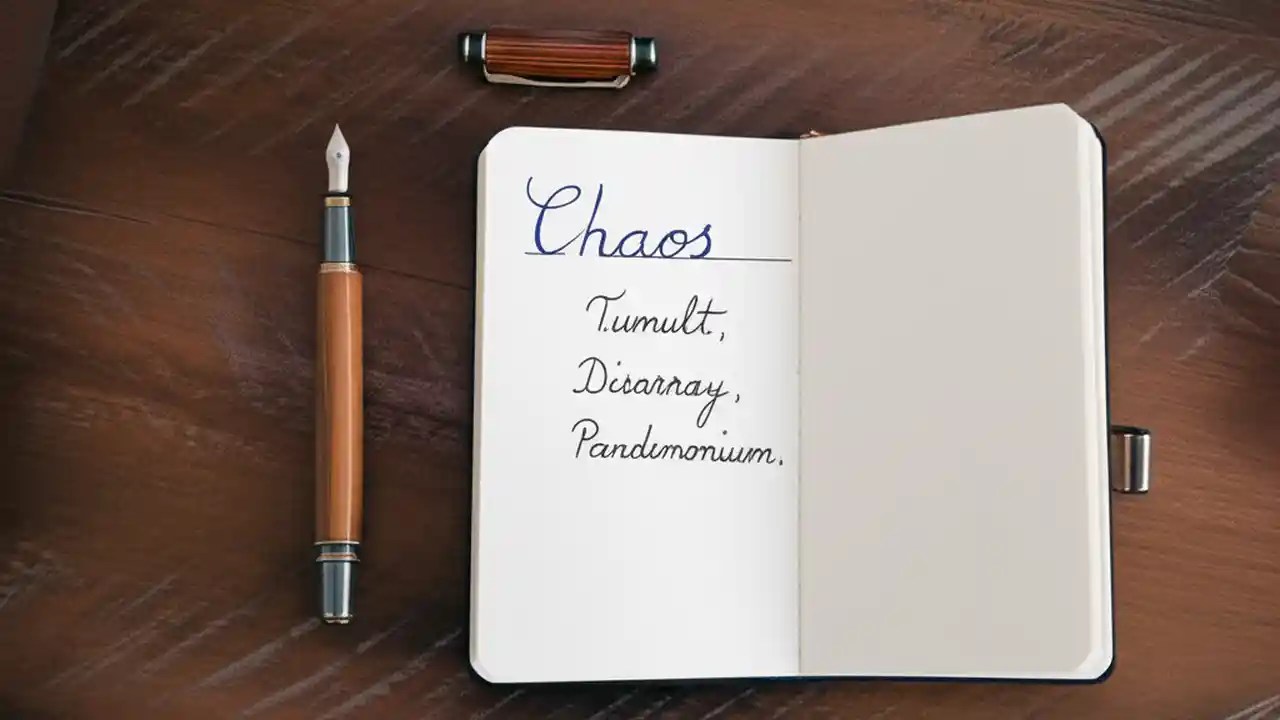 Chaos
Tumult,
Disarray,
Pandemonium.